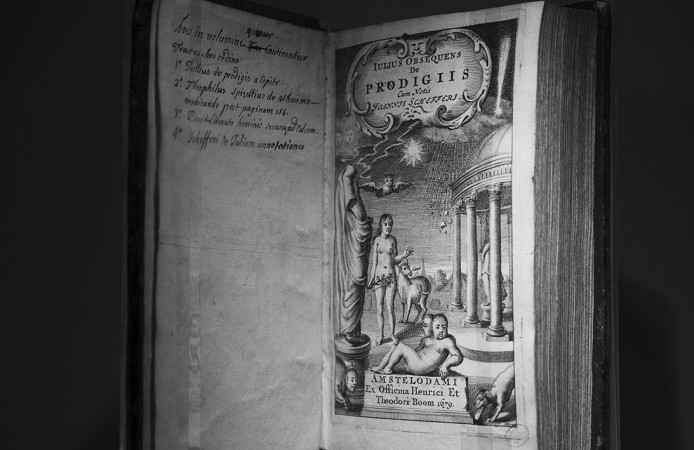 quatuor
hoc in uolumine continentur
Tractus hoc ordine
1° Iullius de prodigiis a capite
2° Theophilus Spizelius de atheismo
post paginam 158.
3°
4° Schefferi in Iulium annotationes
IULIUS OBSEQUENS
De
PRODIGIIS
Cum Notis
IOANNIS SCHEFFERI.
AMSTELODAMI
Ex Officina Henrici Et
Theodori Boom 1679.